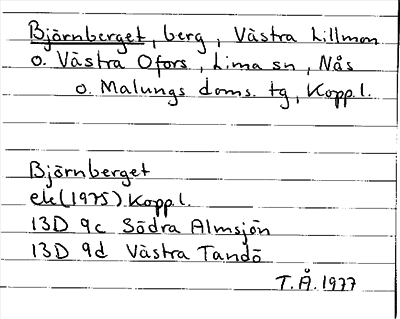 Björnberget, berg, Västra Lillmon
o. Västra Ofors, Lima sn, Nås
o. Malungs doms. tg, Kopp.l.
Björnberget
ek(1975) Kopp.l.
13D 9c Södra Almsjön
13D 9d Västra Tandö
T.Å. 1977